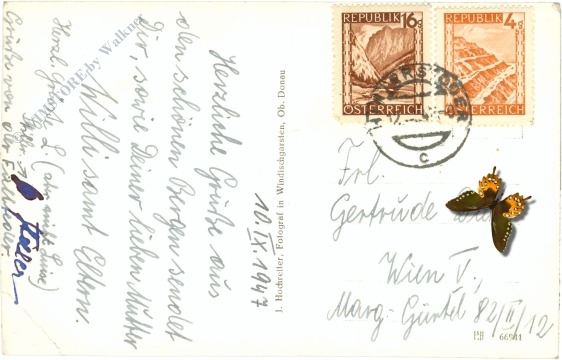 Herzliche Grüße aus
den schönen Bergen sendet
Dir, sowie Deiner lieben Mutter
Willi samt Eltern.
Herzl. Grüße
Grüße von der
10.IX.1947
J. Hochreiter, Fotograf in Windischgarsten, Ob. Donau
REPUBLIK 16g
ÖSTERREICH
REPUBLIK 4g
ÖSTERREICH
HINTERSTODER
c
Frl.
Gertrude
Wien V.,
Marg. Gürtel 82/II/12
66941
STORE by Walkner